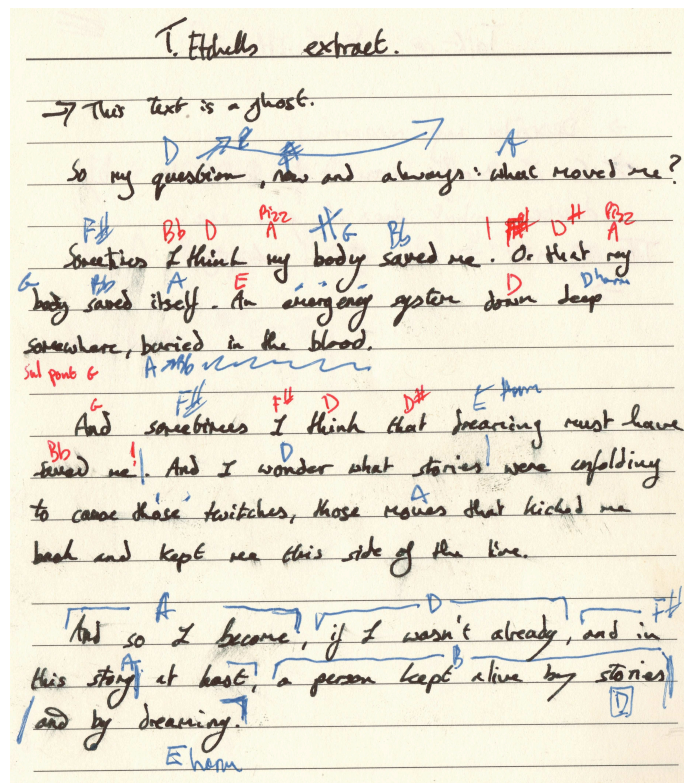 T. Etchells extract.
→ This text is a ghost.
D A
So my question, now and always: what moved me?
F# Bb D Pizz A G Bb D# Pizz A
Sometimes I think my body saved me. Or that my
G Bb A E D D harm
body saved itself. An emergency system down deep
somewhere, buried in the blood.
Sul pont G A → Bb
G F# F# D D# E harm
And sometimes I think that dreaming must have
Bb D
saved me. And I wonder what stories were unfolding
A
to cause those twitches, those moves that kicked me
back and kept me this side of the line.
A D F#
And so I become, if I wasn't already, and in
A B
this story at least, a person kept alive by stories
D
and by dreaming.
E harm